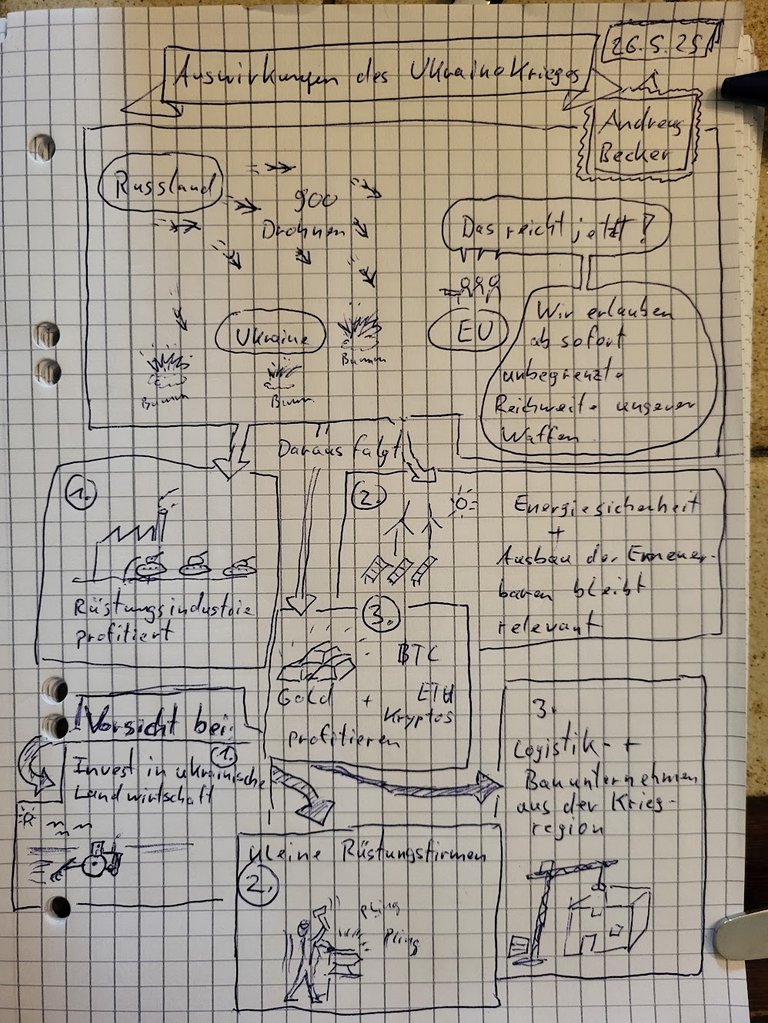 26.5.25
Auswirkungen des Ukrainekrieges
Andreas
Becker
Russland
900
Drohnen
Das reicht jetzt!
Ukraine
EU
Wir erlauben
ab sofort
unbegrenzte
Reichweite ungerer
Waffen
Bumm
Bumm
Bumm
Daraus falgt
1.
Rüstungsindustrie
profitiert
2.
Energiesicherheit
+
Ausbau der Erneuer-
baren bleibt
relevant
3.
BTC
Gold + ETH
Kryptos
profitieren
Vorsicht bei:
1.
Invest in ukrainische
Landwirtschaft
Kleine Rüstungsfirmen
2.
Pling
Pling
3.
Logistik- +
Bauunternehmen
aus der Krieg-
region